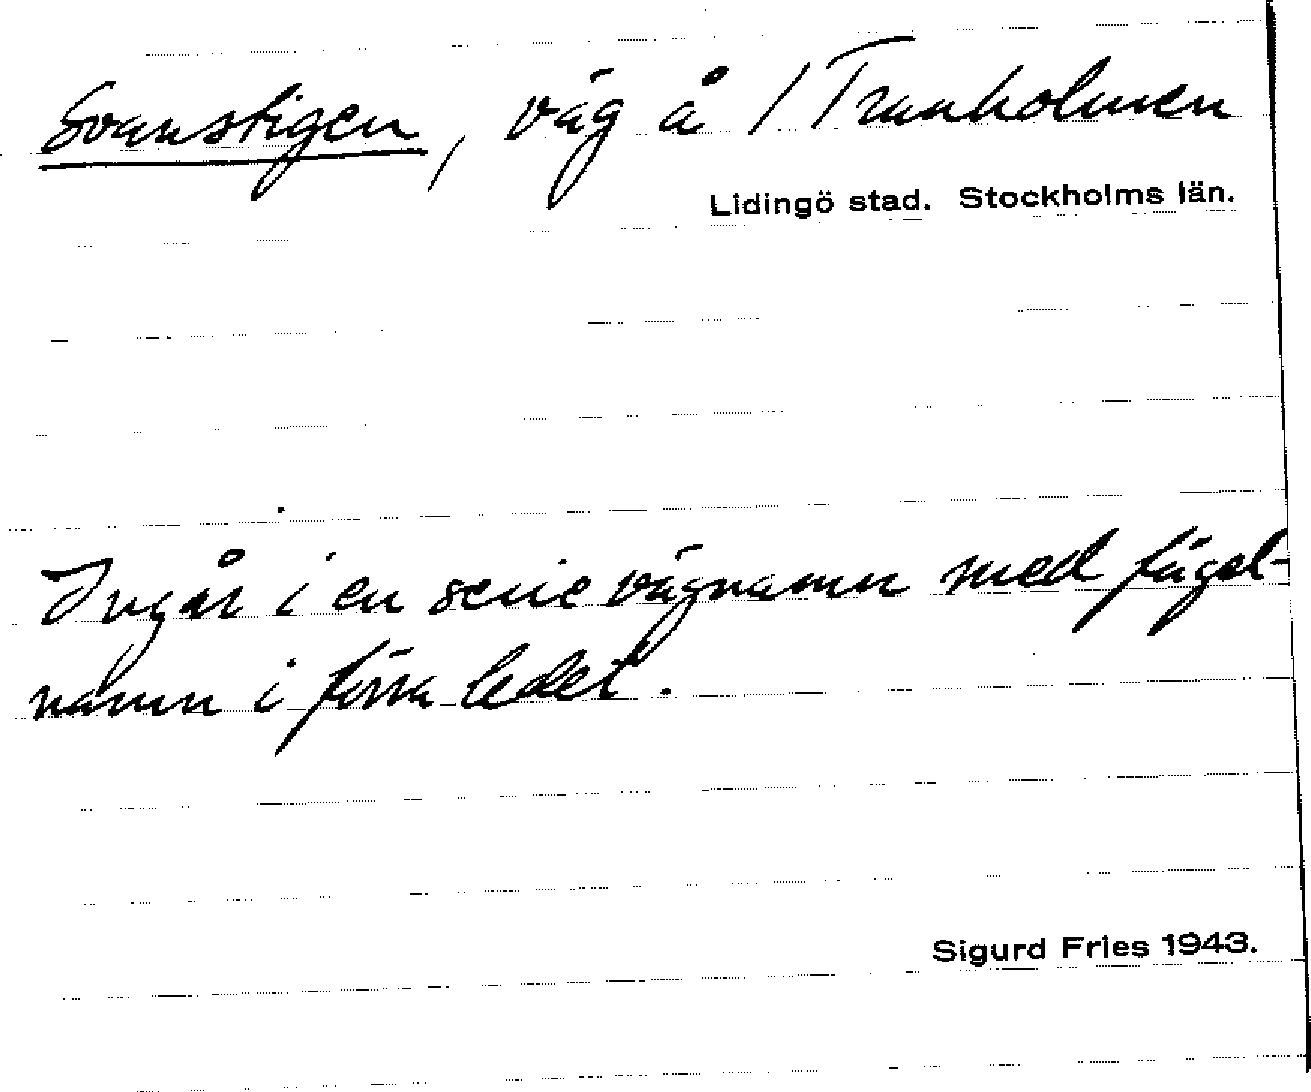 Svanstigen, väg å / Tranholmen
Lidingö stad. Stockholms län.
Ingår i en serie vägnamn med fågel-
namn i förra ledet.
Sigurd Fries 1943.